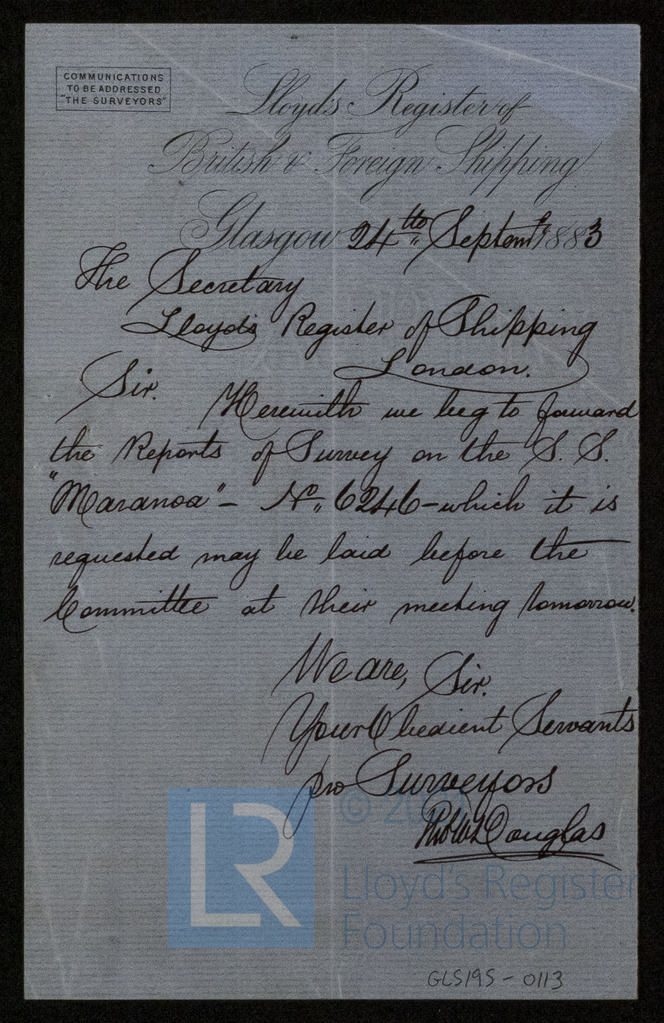 COMMUNICATIONS
TO BE ADDRESSED
"THE SURVEYORS"
Lloyd's Register of
British & Foreign Shipping
Glasgow 24th Septemr 1883
The Secretary
Lloyd's Register of Shipping
London.
Sir. Herewith we beg to forward
the Reports of Survey on the S. S.
"Maranoa" - No. 6246 - which it is
requested may be laid before the
Committee at their meeting tomorrow.
We are, Sir.
Your Obedient Servants
pro Surveyors
Douglas
LR
© 20
Lloyd's Register
Foundation
GLS195 - 0113